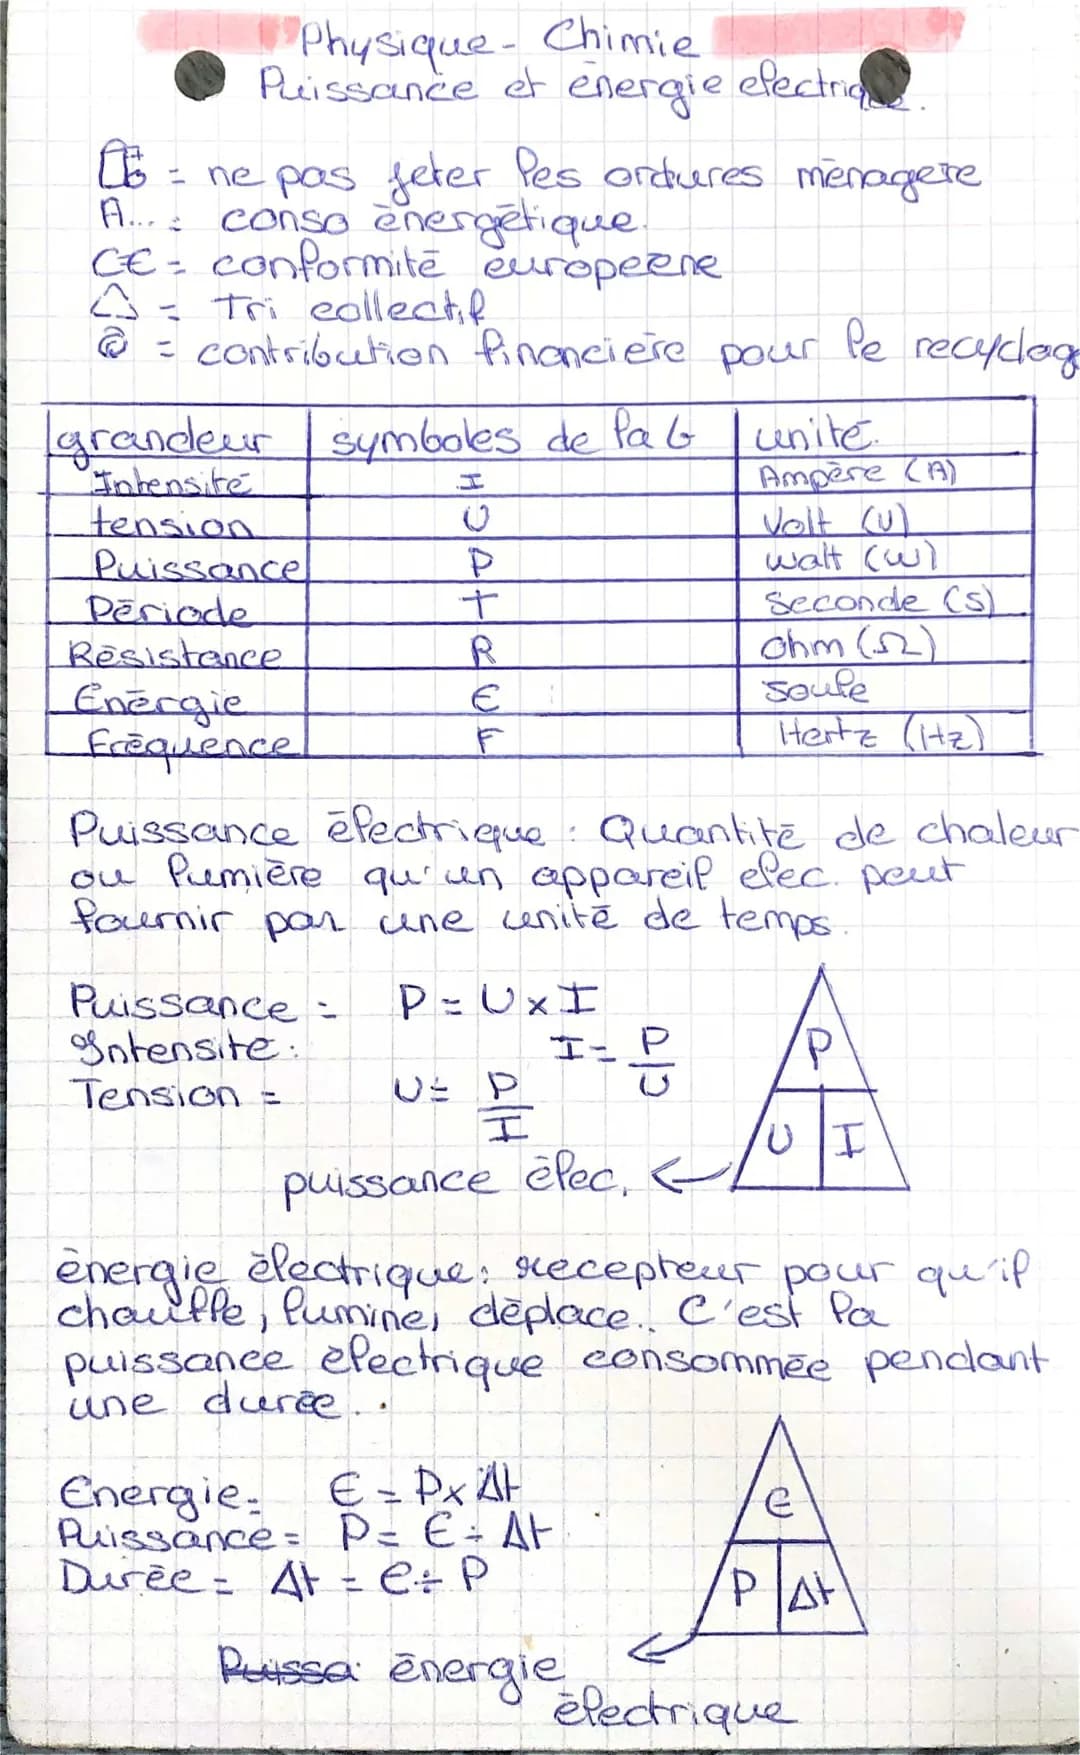 Physique - Chimie
Puissance et énergie electrique.
= ne pas jeter les ordures ménagere
A... : conso énergétique.
CE = conformité européene
= Tri collectif
= contribution financière pour le recyclag
grandeur symboles de la G unité.
Intensité I Ampère (A)
tension U Volt (U)
Puissance P walt (W)
Période T Seconde (s)
Résistance R Ohm (Ω)
Énérgie E Soule
Fréquence F Hertz (Hz)
Puissance électrique : Quantité de chaleur
ou lumière qu'un appareil elec. peut
fournir par une unité de temps.
Puissance = P = U x I
Intensité : I = P/U
Tension = U = P/I
P
U I
puissance élec.
énergie électrique : recepteur pour qu'il
chauffe, lumine, déplace.. C'est la
puissance électrique consommée pendant
une durée..
Energie = E = P x Δt
Puissance = P = E ÷ Δt
Durée = Δt = e ÷ P
e
P Δt
Puissa énergie
électrique